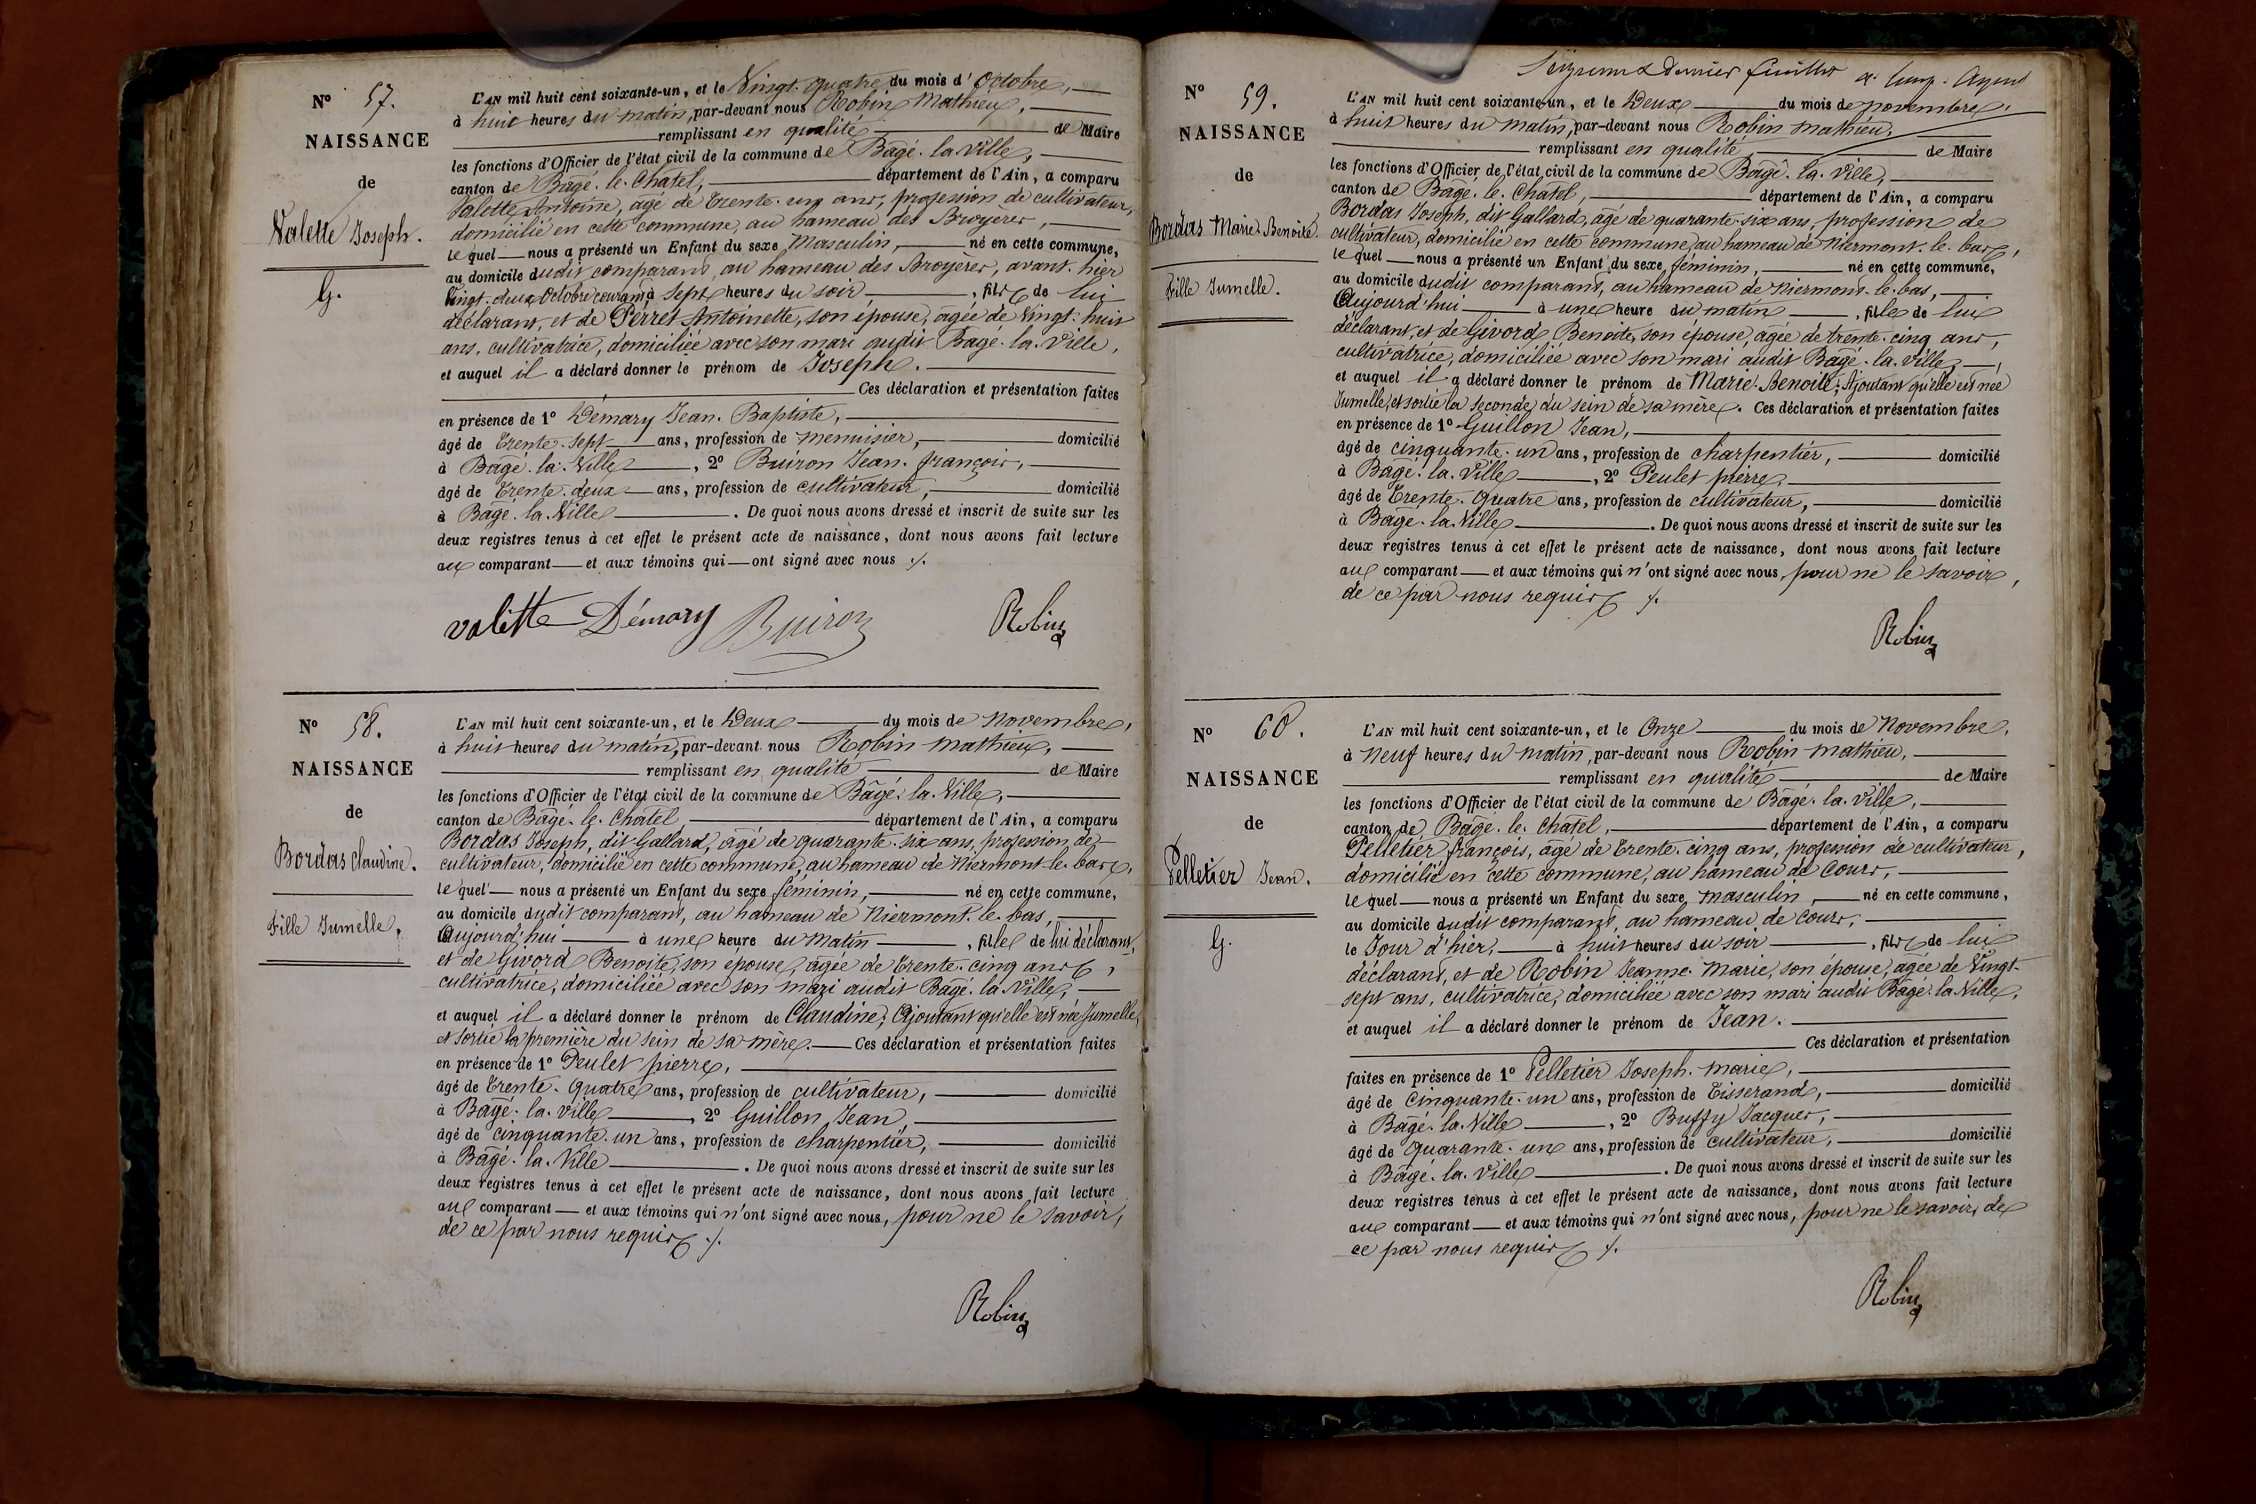 N° 57.
NAISSANCE
de
Valette Joseph.
G.
L'AN mil huit cent soixante-un, et le Vingt-quatre du mois d'Octobre,
à huit heures du matin, par-devant nous Robin Mathieu,
remplissant en qualité de Maire
les fonctions d'Officier de l'état civil de la commune de Bâgé-la-Ville,
canton de Bâgé-le-Chatel, département de l'Ain, a comparu
Valette Antoine, agé de trente-un ans, profession de cultivateur,
domicilié en cette commune, au hameau des Broyères,
lequel nous a présenté un Enfant du sexe masculin, né en cette commune,
au domicile dudit comparant, au hameau des Broyères, avant-hier
Vingt-deux Octobre courant à sept heures du soir, fils de lui
déclarant, et de Perret Antoinette, son épouse, agée de vingt-huit
ans, cultivatrice, domiciliée avec son mari audit Bagé-la-Ville,
et auquel il a déclaré donner le prénom de Joseph.
Ces déclaration et présentation faites
en présence de 1° Démary Jean-Baptiste,
âgé de trente-sept ans, profession de menuisier, domicilié
à Bagé-la-Ville, 2° Buiron Jean-françois,
âgé de trente-deux ans, profession de cultivateur, domicilié
à Bagé-la-Ville. De quoi nous avons dressé et inscrit de suite sur les
deux registres tenus à cet effet le présent acte de naissance, dont nous avons fait lecture
au comparant et aux témoins qui ont signé avec nous ./.
valette Démary Buiron Robin
N° 58.
NAISSANCE
de
Bordas Claudine.
Fille Jumelle.
L'AN mil huit cent soixante-un, et le Deux du mois de novembre,
à huit heures du matin, par-devant nous Robin mathieu,
remplissant en qualité de Maire
les fonctions d'Officier de l'état civil de la commune de Bâgé-la-Ville,
canton de Bâgé-le-Chatel, département de l'Ain, a comparu
Bordas Joseph, dit Gallard, âgé de quarante-six ans, profession de
cultivateur, domicilié en cette commune, au hameau de Niermont-le-bas,
lequel nous a présenté un Enfant du sexe féminin, né en cette commune,
au domicile dudit comparant, au hameau de Niermont-le-bas,
Aujourd'hui à une heure du matin, fille de lui déclarant,
et de Givord Benoite, son épouse, agée de trente-cinq ans,
cultivatrice, domiciliée avec son mari audit Bagé-la-Ville,
et auquel il a déclaré donner le prénom de Claudine; Ajoutant qu'elle est née Jumelle,
et sortie la première du sein de sa mère. Ces déclaration et présentation faites
en présence de 1° Peulet pierre,
âgé de trente-quatre ans, profession de cultivateur, domicilié
à Bagé-la-Ville, 2° Guillon Jean,
âgé de cinquante-un ans, profession de charpentier, domicilié
à Bâgé-la-Ville. De quoi nous avons dressé et inscrit de suite sur les
deux registres tenus à cet effet le présent acte de naissance, dont nous avons fait lecture
au comparant et aux témoins qui n'ont signé avec nous, pour ne le savoir,
de ce par nous requis ./.
Robin
Seizième & dernier feuillet
N° 59.
NAISSANCE
de
Bordas Marie-Benoite.
Fille Jumelle.
L'AN mil huit cent soixante-un, et le Deux du mois de novembre,
à huit heures du matin, par-devant nous Robin mathieu,
remplissant en qualité de Maire
les fonctions d'Officier de l'état civil de la commune de Bagé-la-Ville,
canton de Bagé-le-Chatel, département de l'Ain, a comparu
Bordas Joseph, dit Gallard, âgé de quarante-six ans, profession de
cultivateur, domicilié en cette commune, au hameau de Niermont-le-bas,
lequel nous a présenté un Enfant du sexe féminin, né en cette commune,
au domicile dudit comparant, au hameau de Niermont-le-bas,
Aujourd'hui à une heure du matin, fille de lui
déclarant, et de Givord Benoite, son épouse, agée de trente-cinq ans,
cultivatrice, domiciliée avec son mari audit Bagé-la-Ville,
et auquel il a déclaré donner le prénom de Marie-Benoite; Ajoutant qu'elle est née
Jumelle, et sortie la seconde du sein de sa mère. Ces déclaration et présentation faites
en présence de 1° Guillon Jean,
âgé de cinquante-un ans, profession de charpentier, domicilié
à Bagé-la-Ville, 2° Peulet pierre,
âgé de trente-quatre ans, profession de cultivateur, domicilié
à Bagé-la-Ville. De quoi nous avons dressé et inscrit de suite sur les
deux registres tenus à cet effet le présent acte de naissance, dont nous avons fait lecture
au comparant et aux témoins qui n'ont signé avec nous, pour ne le savoir,
de ce par nous requis ./.
Robin
N° 60.
NAISSANCE
de
Pelletier Jean.
G.
L'AN mil huit cent soixante-un, et le Onze du mois de Novembre,
à neuf heures du matin, par-devant nous Robin mathieu,
remplissant en qualité de Maire
les fonctions d'Officier de l'état civil de la commune de Bâgé-la-Ville,
canton de Bâgé-le-Chatel, département de l'Ain, a comparu
Pelletier françois, âgé de trente-cinq ans, profession de cultivateur,
domicilié en cette commune, au hameau de Cours,
lequel nous a présenté un Enfant du sexe masculin, né en cette commune,
au domicile dudit comparant, au hameau de Cours,
le Jour d'hier, à huit heures du soir, fils de lui
déclarant, et de Robin Jeanne-Marie, son épouse, agée de Vingt-
sept ans, cultivatrice, domiciliée avec son mari audit Bagé-la-Ville,
et auquel il a déclaré donner le prénom de Jean.
Ces déclaration et présentation
faites en présence de 1° Pelletier Joseph-marie,
âgé de cinquante-un ans, profession de Tisserand, domicilié
à Bagé-la-Ville, 2° Buffy Jacques,
âgé de quarante-un ans, profession de cultivateur, domicilié
à Bâgé-la-Ville. De quoi nous avons dressé et inscrit de suite sur les
deux registres tenus à cet effet le présent acte de naissance, dont nous avons fait lecture
au comparant et aux témoins qui n'ont signé avec nous, pour ne le savoir, de
ce par nous requis ./.
Robin